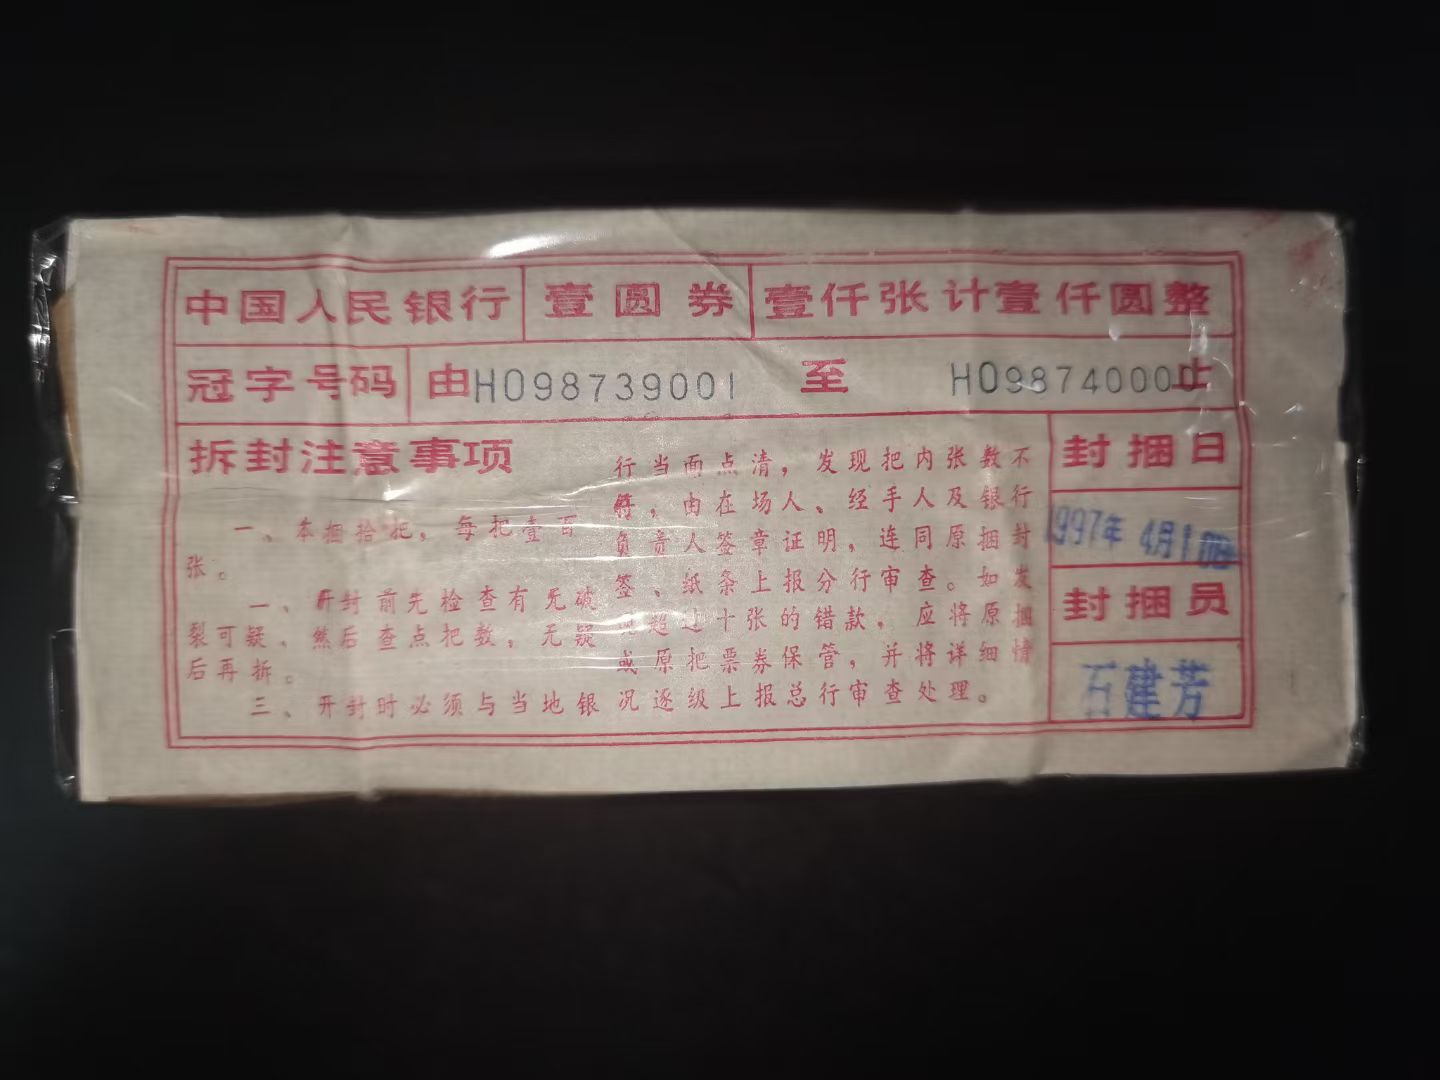 中国人民银行 壹圆券 壹仟张计壹仟圆整
冠字号码 由HO98739001 至 HO98740000止
拆封注意事项
一、本捆拾把，每把壹百
张。
一、开封前先检查有无破
裂可疑，然后查点把数，无疑
后再拆。
三、开封时必须与当地银
行当面点清，发现把内张数不
符，由在场人、经手人及银行
负责人签章证明，连同原捆封
签、纸条上报分行审查。如发
现超过十张的错款，应将原捆
或原把票券保管，并将详细情
况逐级上报总行审查处理。
封捆日
1997年 4月10日
封捆员
石建芳